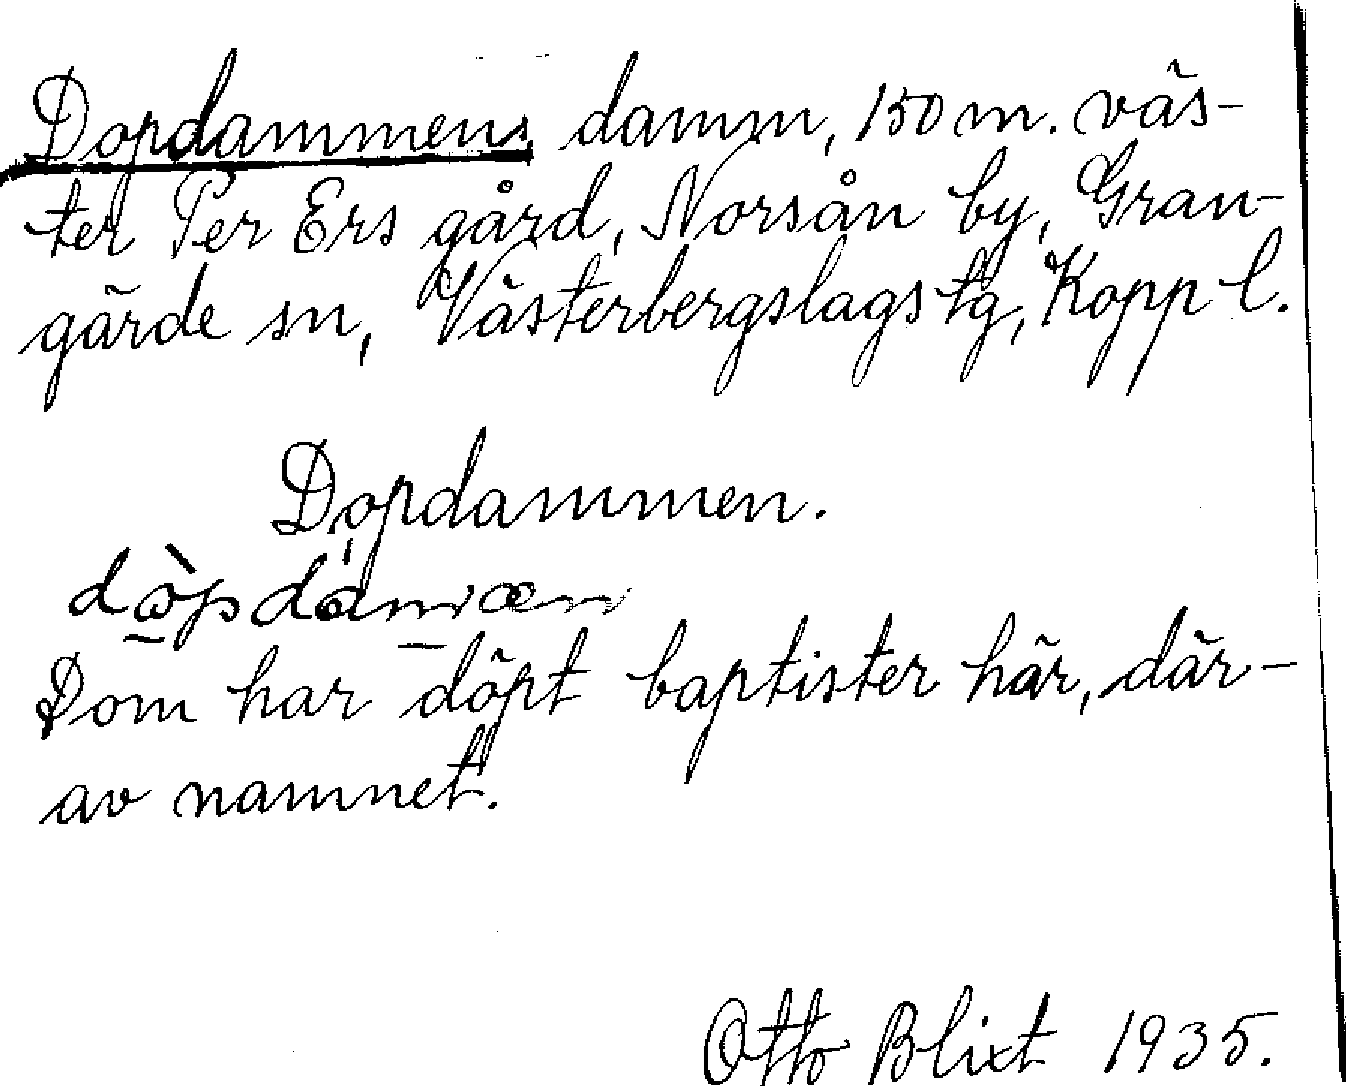 Dopdammen, damm, 150 m. väs-
ter Per Ers gård, Norsån by, Gran-
gärde sn, Västerbergslags tg, Kopp l.
Dopdammen.
Dom har döpt baptister här, där-
av namnet.
Otto Blixt 1935.